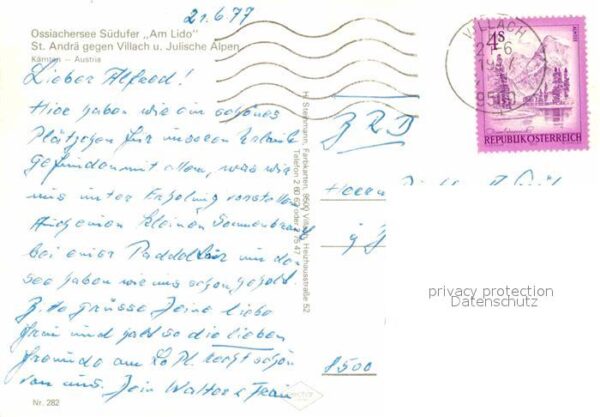 21.6.77
Ossiachersee Südufer „Am Lido"
St. Andrä gegen Villach u. Julische Alpen
Kärnten – Austria
Lieber Alfred!
Hier haben wir ein schönes
Plätzchen für unseren Urlaub
gefunden mit allem, was wir
uns unter Erholung vorstellen
Auch einen kleinen Sonnenbrand
bei einer Paddeltour
see haben wir uns schon geholt
Bitte grüsse Deine liebe
Frau und halt so die lieben
Freunde am recht schön
von uns. Dein Walter & Frau
Nr. 282
H. Steinmann, Farbkarten, 9500 Villach, Heizhausstraße 52
Telefon 2 60 62 oder 2 75 47
VILLACH
9500
4 S
REPUBLIK ÖSTERREICH
BRD
Herrn
8500
privacy protection
Datenschutz